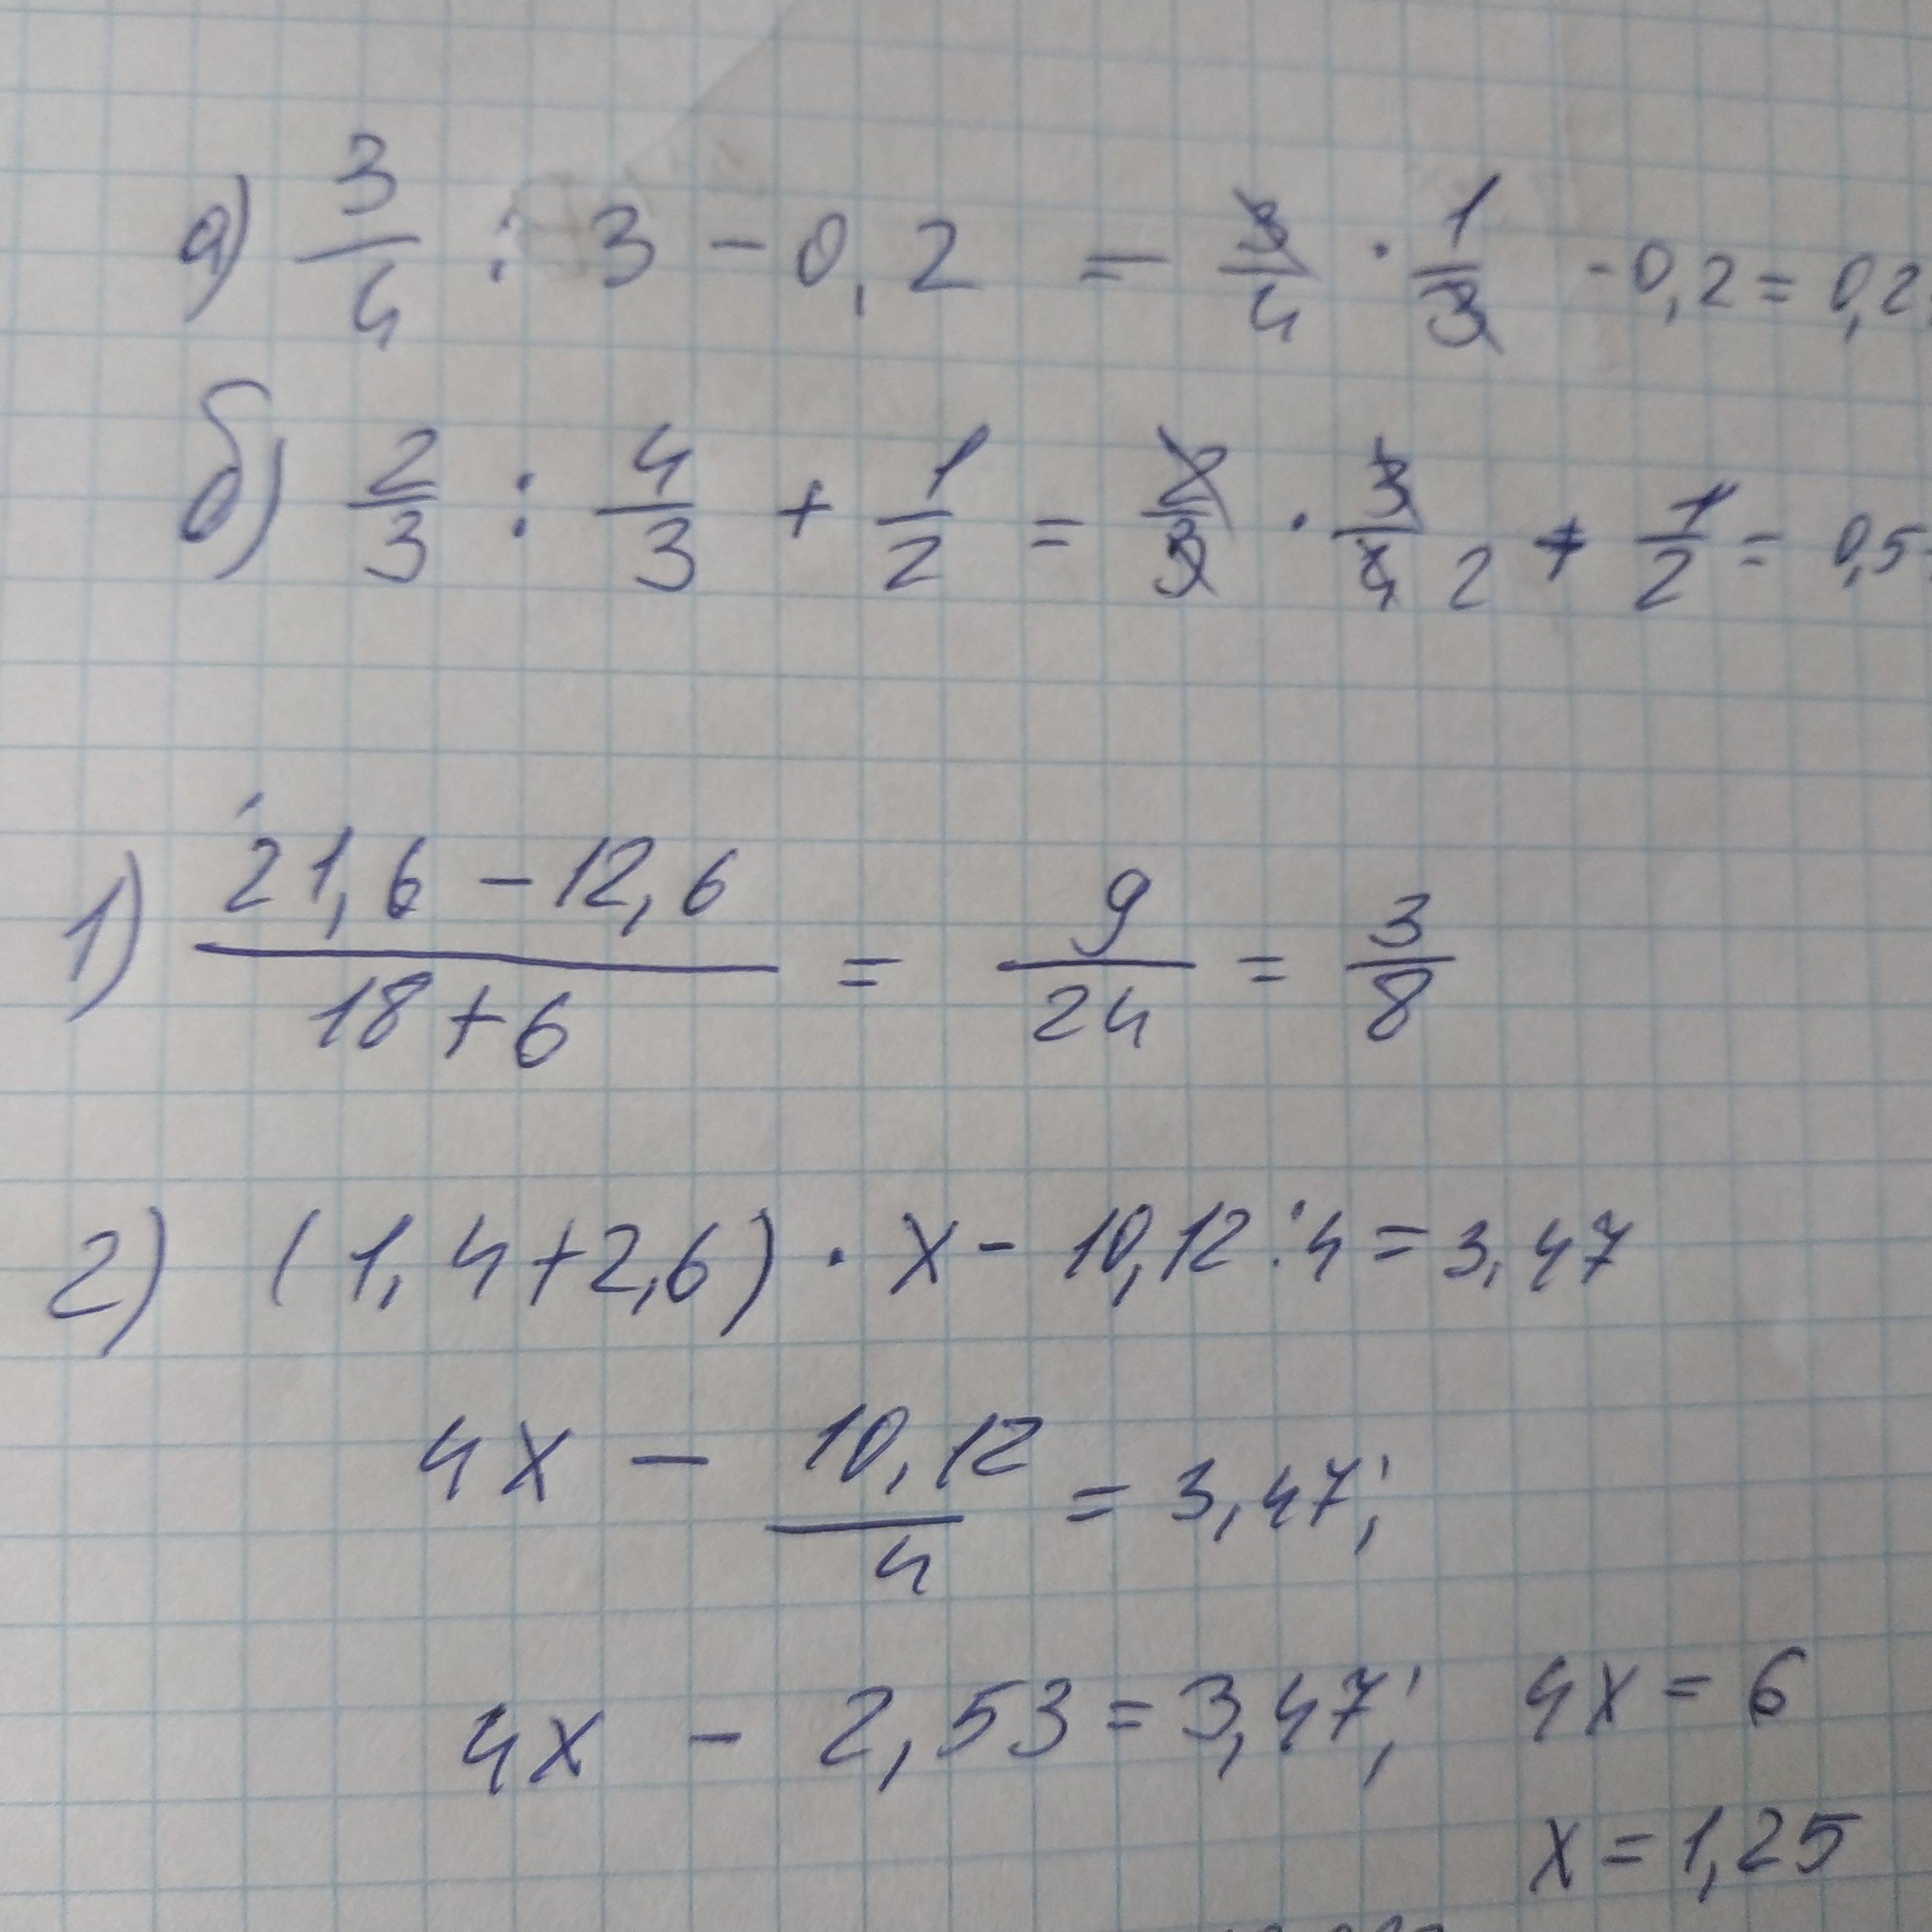 а) 3/4 : 3 - 0,2 = 3/4 · 1/3 - 0,2 = 0,2
б) 2/3 : 4/3 + 1/2 = 2/3 · 3/4 2 + 1/2 = 0,5
1) (21,6 - 12,6)/(18 + 6) = 9/24 = 3/8
2) (1,4 + 2,6) · x - 10,12 : 4 = 3,47
4x - 10,12/4 = 3,47;
4x - 2,53 = 3,47; 4x = 6
x = 1,25